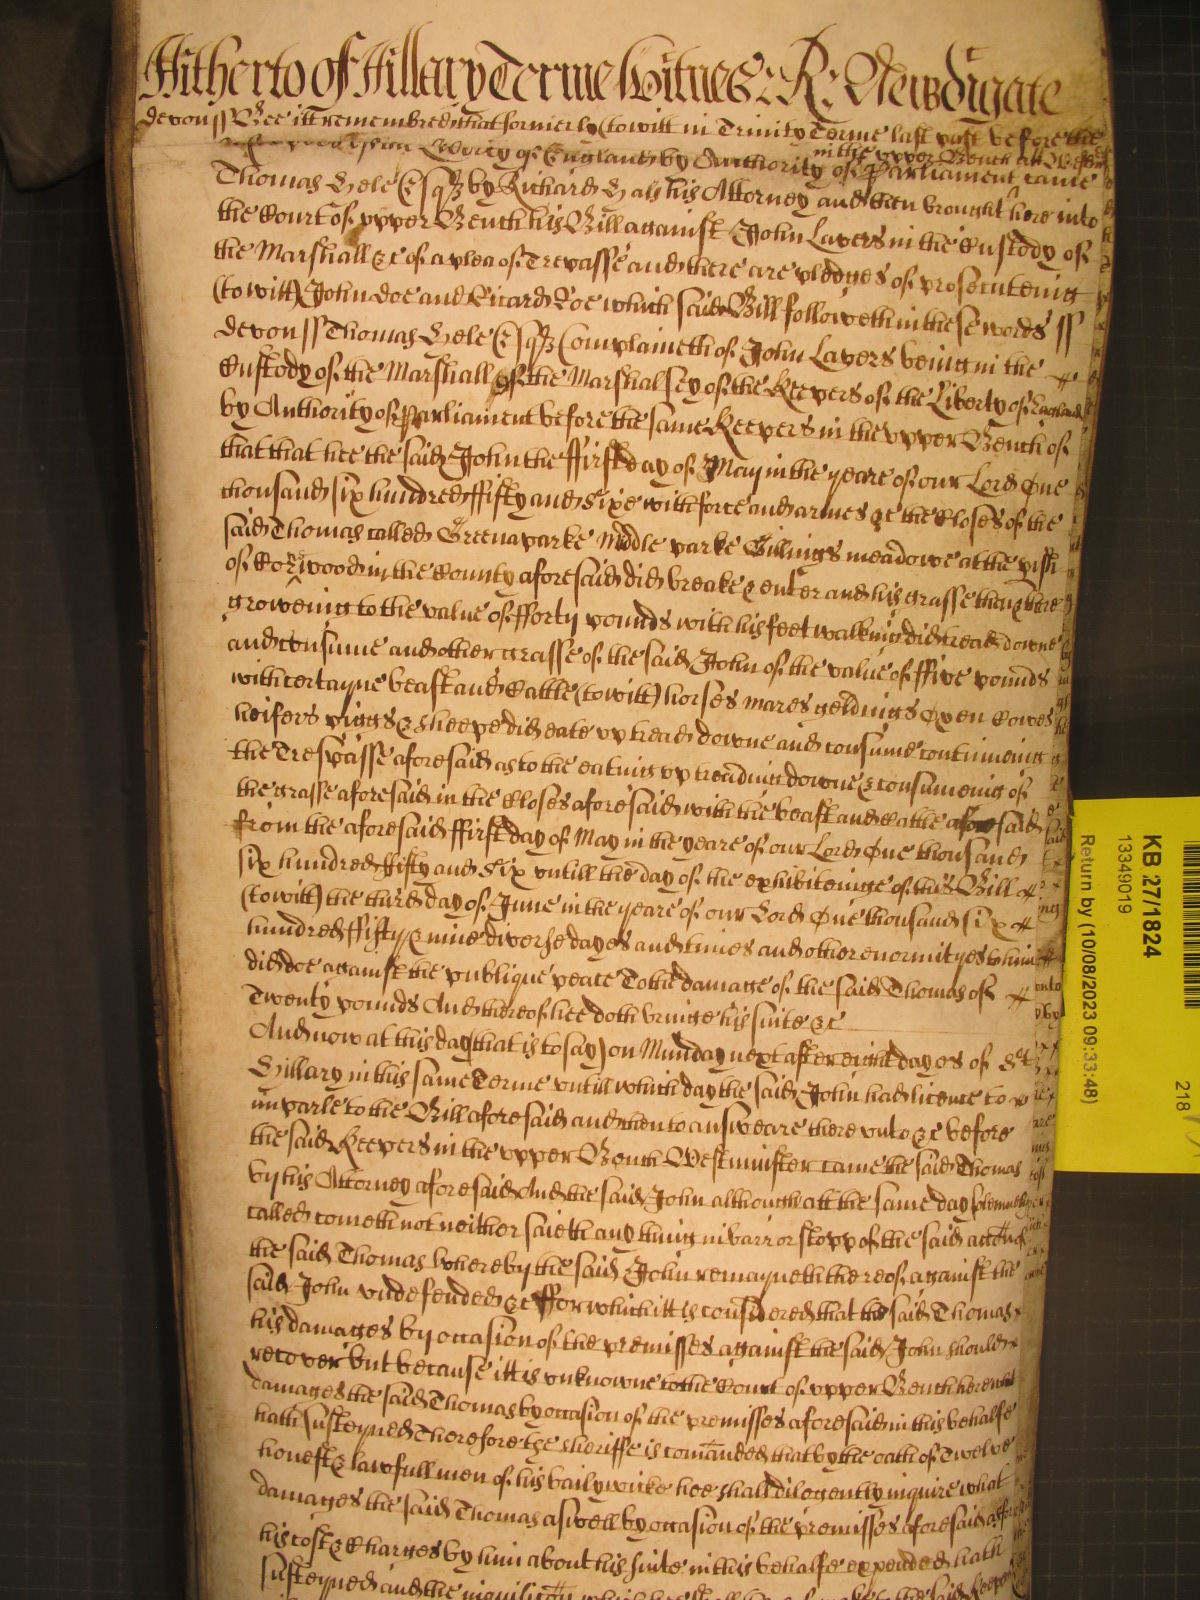 Hitherto of Hillary Terme Witnes: R: Newdigate
devon ss Bee itt remembred that formerly (to witt in Trinity Terme last past before the
Liberty of England by Authority of Parliament came
in the upper Bench att Westm
Thomas Hele Esqz by Richard Hals his Attorney and then brought here into
the Court of upper Bench his Bill against John Lavers in the Custody of
the Marshall &c of a plea of Trespasse and there are pledges of prosecuteing
(to witt) John doe and Ricard Roe which said Bill followeth in these words ss
devon ss Thomas Hele Esqz Complaineth of John Lavers being in the
Custody of the Marshall of the Marshalsey of the Keepers of the Liberty of England
by Authority of Parliament before the same Keepers in the upper Bench of
that that hee the said John the ffirst day of May in the yeare of our Lord One
thousand six hundred ffifty and Sixe with force and armes &c the Closes of the
said Thomas called Greenaparke Middle parke Gillings meadowe at the pish
of Corwood in the County aforesaid did breake & enter and his grasse then & there
groweing to the value of fforty pounds with his feet walking did tread downe
and consume and other grasse of the said John of the value of ffive pounds
with certayne beast and Cattle (to witt) horses mares geldings Oxen Cowes
heifers piggs & sheepe did eate up tread downe and consume continueing
the Trespasse aforesaid as to the eating up treading downe & consumeing of
the grasse aforesaid in the Closes aforesaid with the beast and Cattle aforesaid
from the aforesaid ffirst day of May in the yeare of our Lord One thousand
six hundred ffifty and Six untill the day of the exhibiteinge of this Bill
(to witt) the third day of June in the yeare of our Lord One thousand six
hundred ffifty & nine diverse dayes and times and other enormityes to him
did doe against the publique peace To the damage of the said Thomas of
Twenty pounds And thereof hee doth bringe his suite &c
And now at this day (that is to say) on Munday next after eight dayes of St
Hillary in this same Terme untill which day the said John had licence to
imparle to the Bill aforesaid and then to answeare thereunto &c before
the said Keepers in the upper Bench Westminster came the said Thomas
by his Attorney aforesaid And the said John although att the same day solemnely
called cometh not neither saieth any thing in barr or stopp of the said action of
the said Thomas Whereby the said John remayneth thereof against the
said John undefended &c Ffor which itt is considered that the said Thomas
his damages by occasion of the premisses against the said John should
recover but because itt is unknowne to the Court of upper Bench here what
damages the said Thomas by occasion of the premisses aforesaid in this behalfe
hath susteyned Therefore the Sheriffe is comanded that by the oath of Twelve
honest & lawfull men of his bailywicke hee shall diligently inquire what
damages the said Thomas aswell by occasion of the premisses aforesaid as for
his costs & Charges by him about his suite in this behalfe expended hath
susteyned and the inquisicon which
KB 27/1824
13349019
Return by (10/08/2023 09:33:48)
218